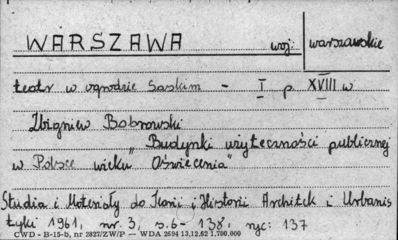 WARSZAWA woj: warszawskie
teatr w ogrodzie Saskim - I p. XVIII w
Zbigniew Bobrowski
"Budynki użyteczności publicznej
w Polsce wieku Oświecenia"
Studia i Materiały do Teorii i Historii Architek i Urbanis
tyki 1961, nr. 3, s. 6 - 138, ryc: 137
CWD - B-15-b, nr 2827/ZW/P — WDA 2694 13,12.62 1,700.000